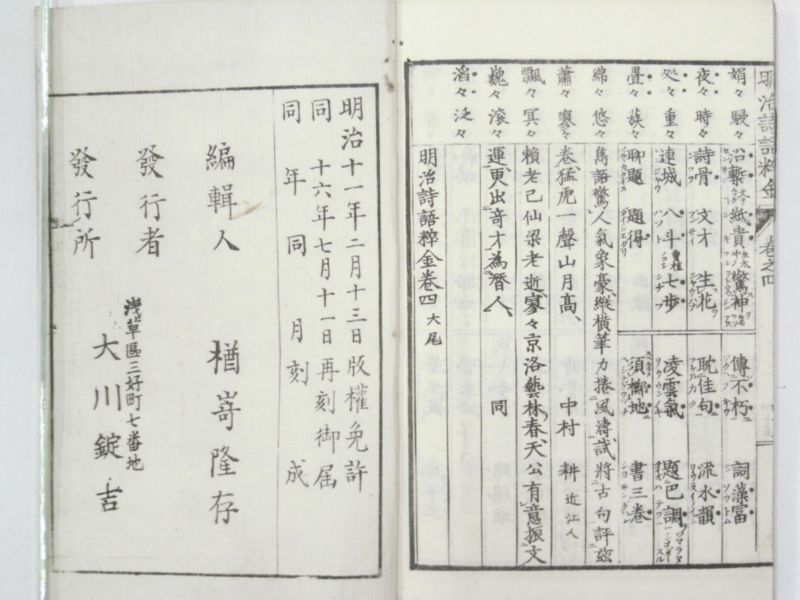 明治詩語粹金 卷之四
娟々 駸々 沿藝 紙貴 驚神 傳不朽 詞藻富
夜々 時々 詩骨 文才 生花 耽佳句 流水韻
処々 重々 連城 八斗 七歩 凌雲氣 題巴調
疊々 簇々 聊題 題得 須擲地 書三卷
綿々 悠々 馬語驚人氣象豪縱橫筆力捲風濤試將古句評茲
蕭々 寥々 卷猛虎一聲山月高 中村 耕 近江人
飄々 冥々 賴老已仙梁老逝寥々京洛藝林春天公有意振文
巍々 滾々 運更出奇才為替人 同
滔々 泛々
明治詩語粹金卷四大尾
明治十一年二月十三日版權免許
同 十六年七月十一日再刻御届
同 年 同 月 刻 成
編輯人 楢嵜隆存
發行者 淺草區三好町七番地
發行所 大川錠吉